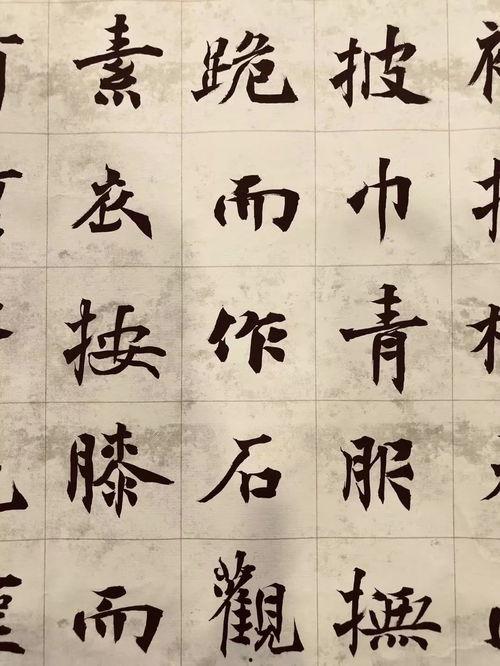 披巾青服撫
跪而作石觀
素衣按膝而